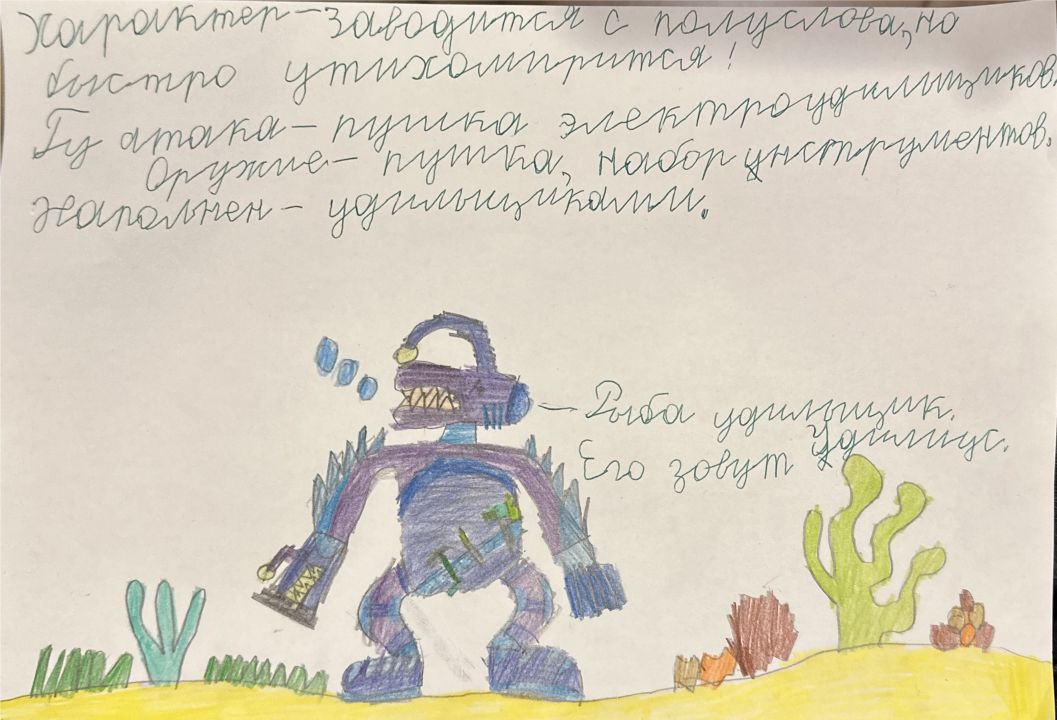 Характер - заводится с полуслова, но
быстро утихомирится!
Гу атака - пушка электроудильщиков.
Оружие - пушка, набор инструментов.
Наполнен - удильщиками.
Рыба удильщик.
Его зовут Удилиус.